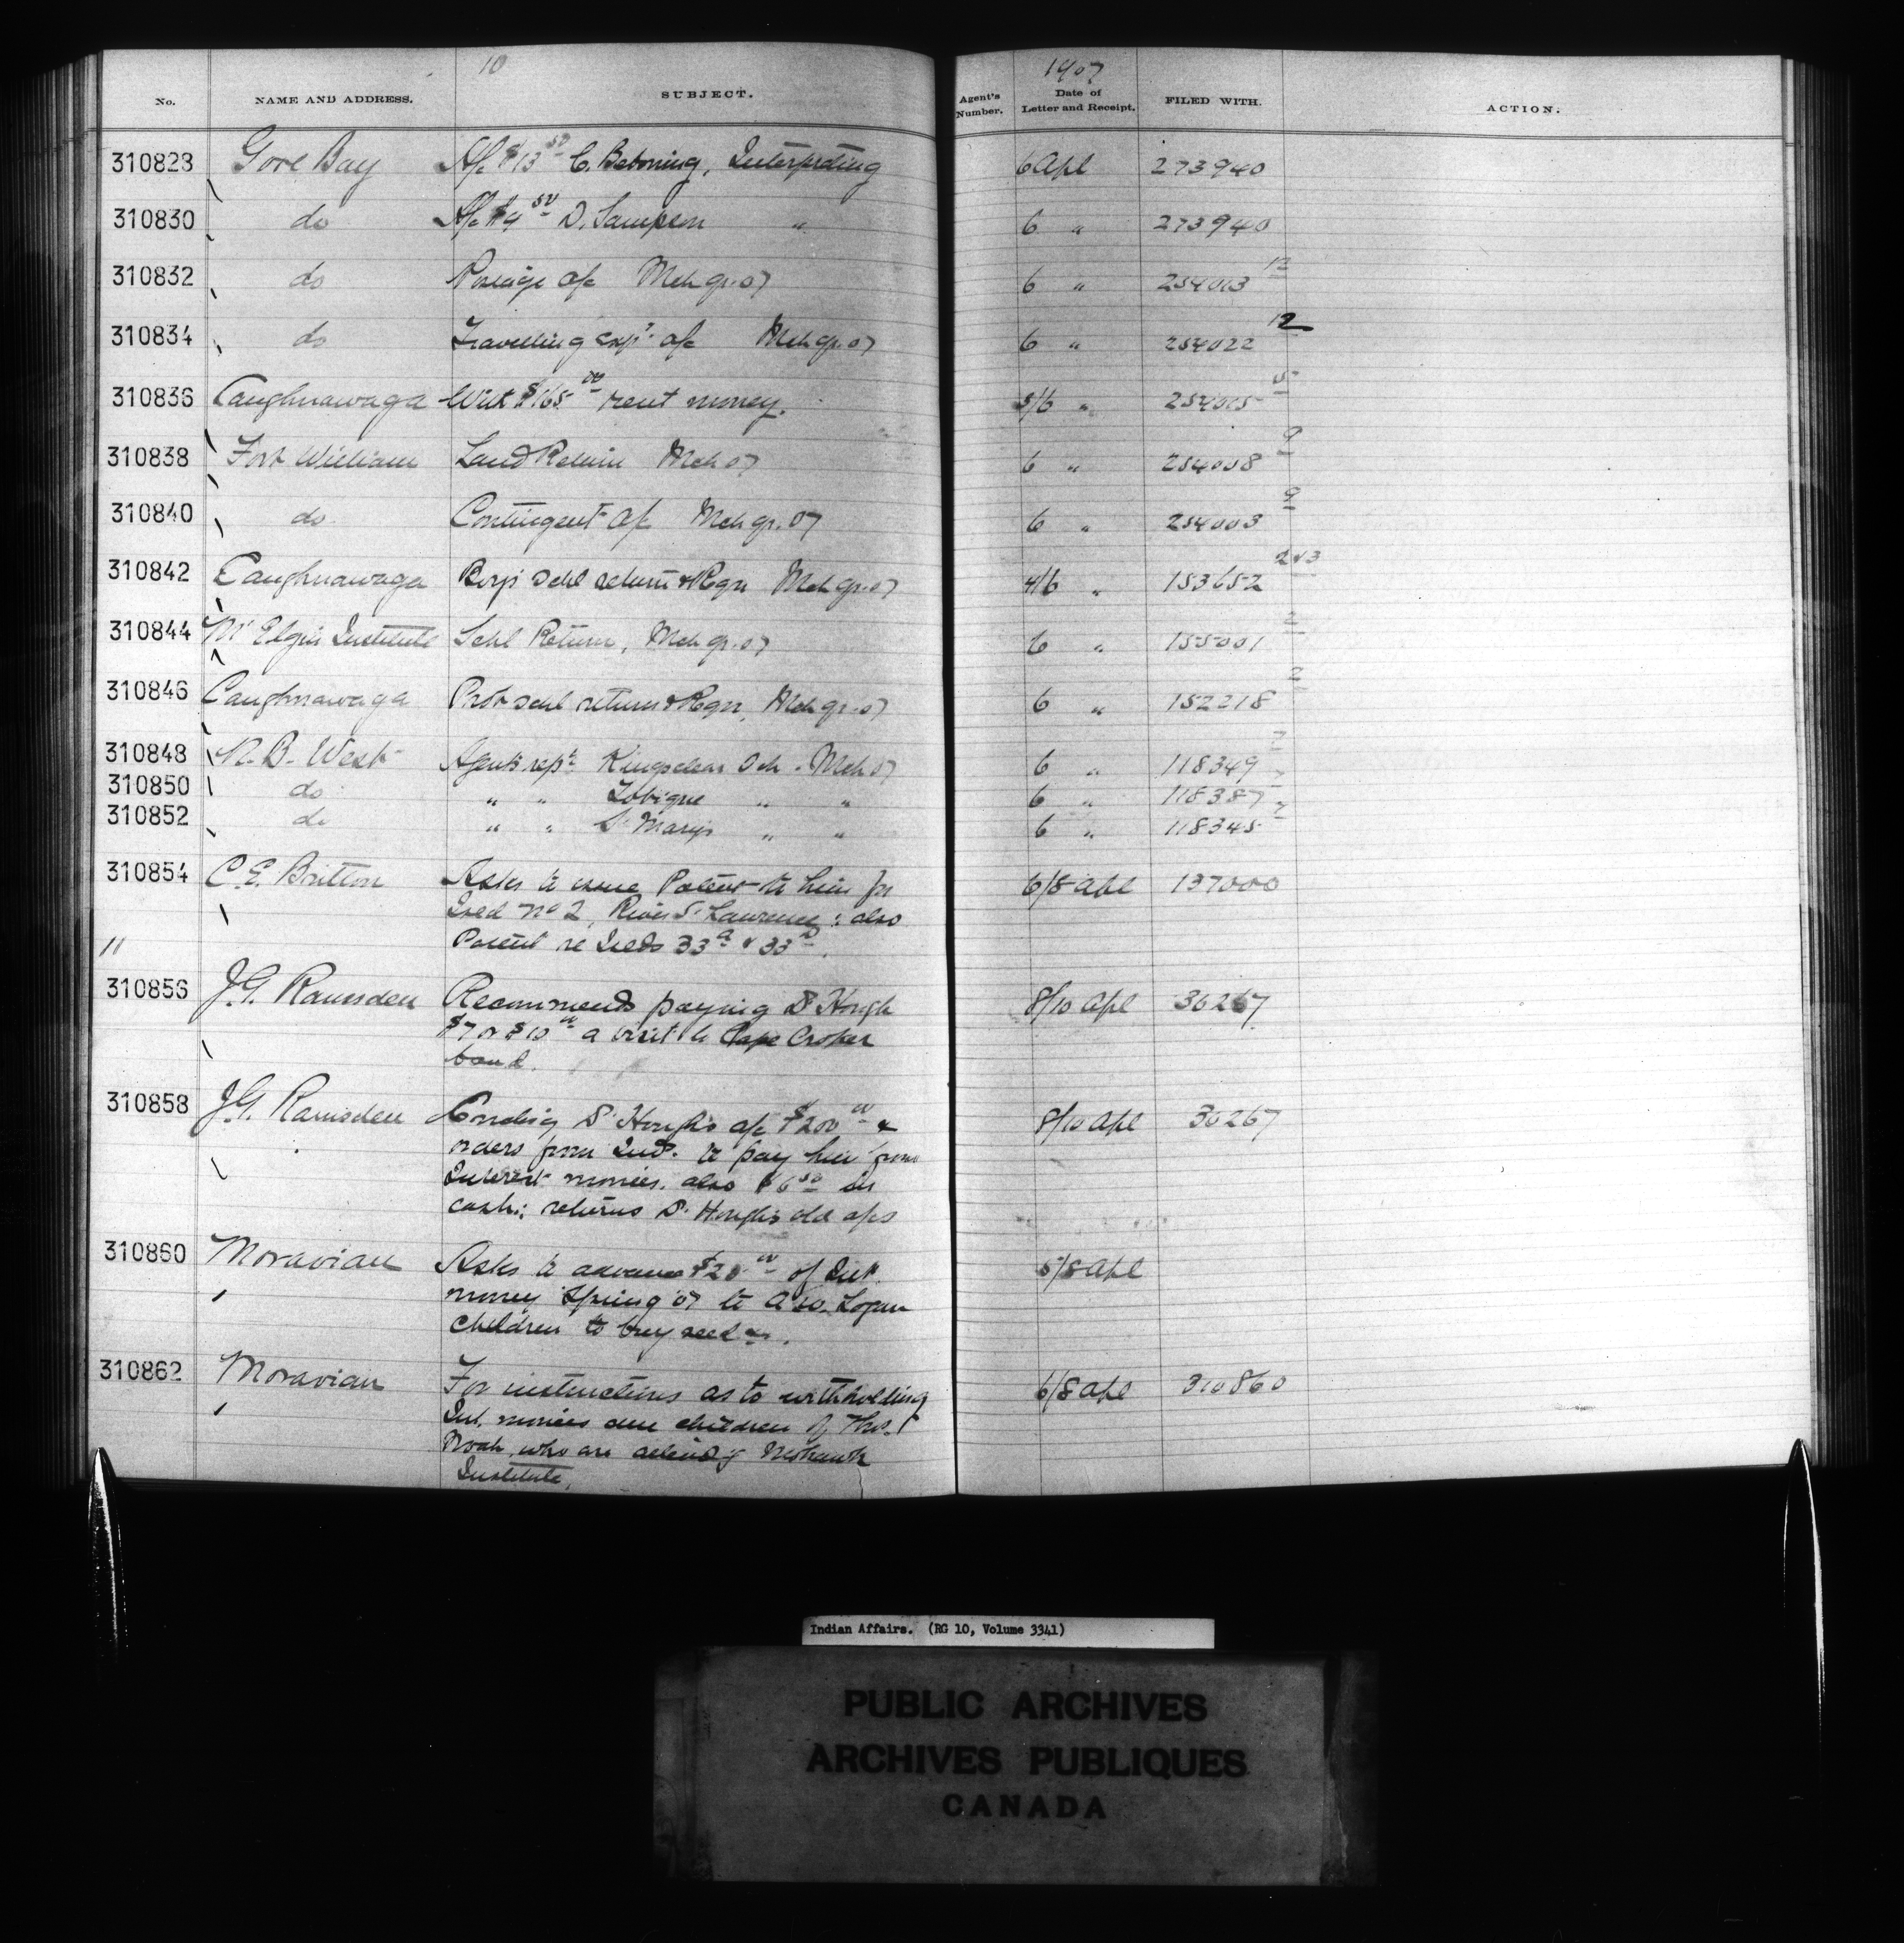 10
1907
No. NAME AND ADDRESS. SUBJECT. Agent's Number. Date of Letter and Receipt. FILED WITH. ACTION.
310828 Gore Bay A/c $13.50 C. Beboning, Interpreting 6 Apl 273940
310830 do A/c $9.50 D. Sampson " 6 " 273940
310832 do Postage a/c Mch qr. 07 6 " 254013 12
310834 do Travelling exps. a/c Mch qr. 07 6 " 254022 12
310836 Caughnawaga With $165.00 rent money. 5/6 " 254005 5
310838 Fort William Land Return Mch 07 6 " 254008 9
310840 do Contingent a/c Mch qr. 07 6 " 254003 9
310842 Caughnawaga Boys' Schl return & Regr Mch qr. 07 4/6 " 153652 2 & 3
310844 Mt Elgin Institute Schl Return, Mch qr. 07 6 " 155001 2
310846 Caughnawaga Prot schl return & Regr, Mch qr. 07 6 " 152218 2
310848 N. B. West Agents rept. Kingsclear Sch. Mch 07 6 " 118349 7
310850 do " " Tobique " " 6 " 118387 7
310852 do " " St Marys " " 6 " 118345 7
310854 C. E. Britton Asks to issue Patent to him for 6/8 Apl 137000
Isld No 2, River St Lawrence; also
11 Patent re Islds 33a & 33b.
310856 J. G. Ramsden Recommends paying Dr Hough 8/10 Apl 36267
$7 or $10.00 a visit to Cape Croker
band.
310858 J. G. Ramsden Sending Dr Hough's a/c $200.00 & 8/10 Apl 36267
orders from Inds. to pay him from
Interest monies. also $6.50 in
cash; returns Dr. Hough's old a/cs
310860 Moravian Asks to advance $20.00 of Int. 5/8 Apl
money Spring 07 to Logan
children to buy seed &c.
310862 Moravian For instructions as to withholding 6/8 Apl 310860
Int. monies due children of Thos.
Noah who are attendg Mohawk
Institute.
Indian Affairs. (RG 10, Volume 3341)
PUBLIC ARCHIVES
ARCHIVES PUBLIQUES
CANADA